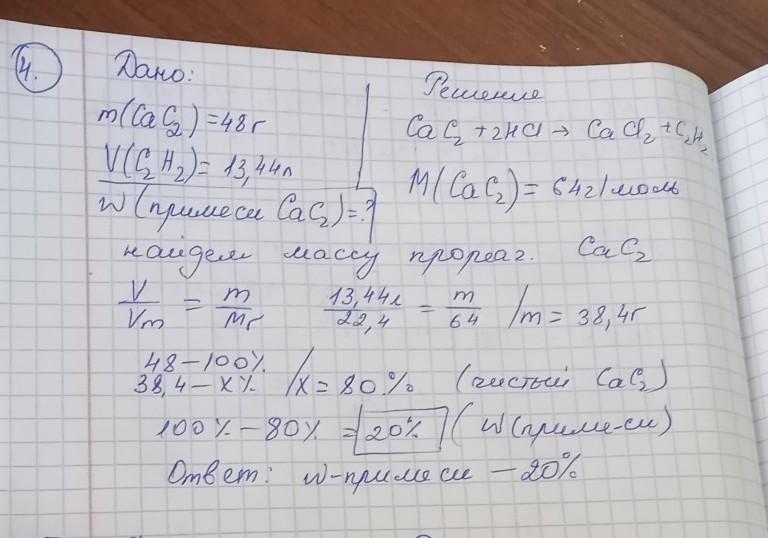 4.
Дано:
m(CaC₂)=48г
V(C₂H₂)= 13,44л
w(примеси CaC₂)=?
Решение
CaC₂ +2HCl → CaCl₂+C₂H₂
M(CaC₂)= 64г/моль
найдем массу прореаг. CaC₂
V/Vm = m/Mr 13,44л/22,4 = m/64 /m= 38,4г
48–100%
38,4–x% /x= 80% (чистый CaC₂)
100%–80% =20% (w(приме-си)
Ответ: w-примеси –20%